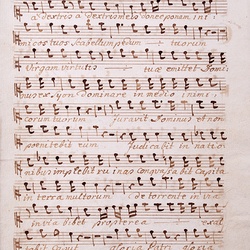 a dextris a dextris meis donec ponam ini
micos tuos scabellum pedum tuorum
Virgam virtutis tuæ emittet Domi
nus ex Sion dominare in medio inimi
corum tuorum juravit Dominus et non
poenitebit eum judicabit in natio
nibus implebit ruinas conquassabit capita
in terra multorum de torrente in via
in via bibet propterea exal
tabit caput gloria Patri gloria